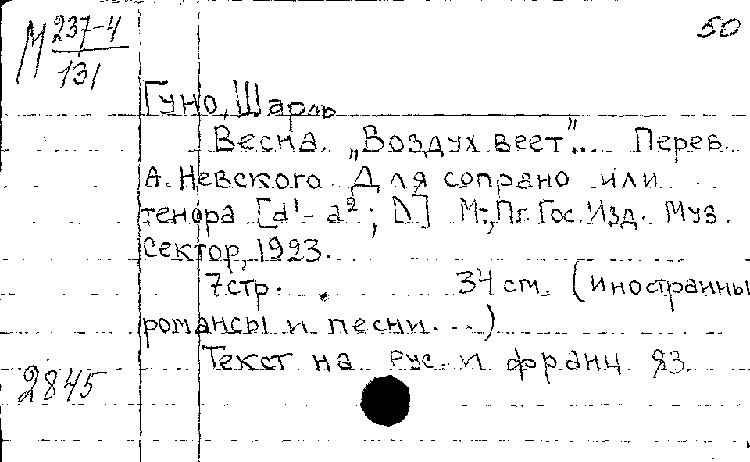 М 237-4
131
50
Гуно, Шарль
Весна. „Воздух веет"... Перев.
А. Невского Для сопрано или
тенора [d¹- a²; D] М.,Пг. Гос. Изд. Муз.
Сектор, 1923.
7стр. 34 см. (иностранны
романсы и песни...)
Текст на рус. и франц яз.
2845